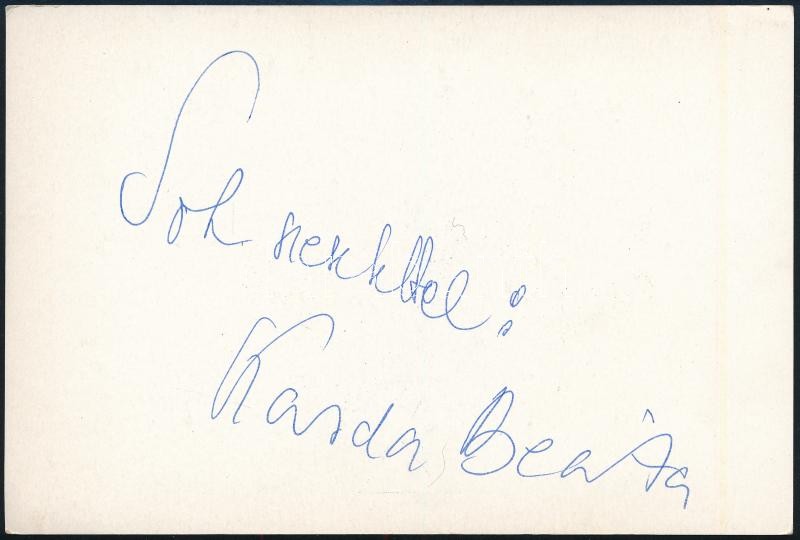 Sok szeretettel:
Karda Beáta